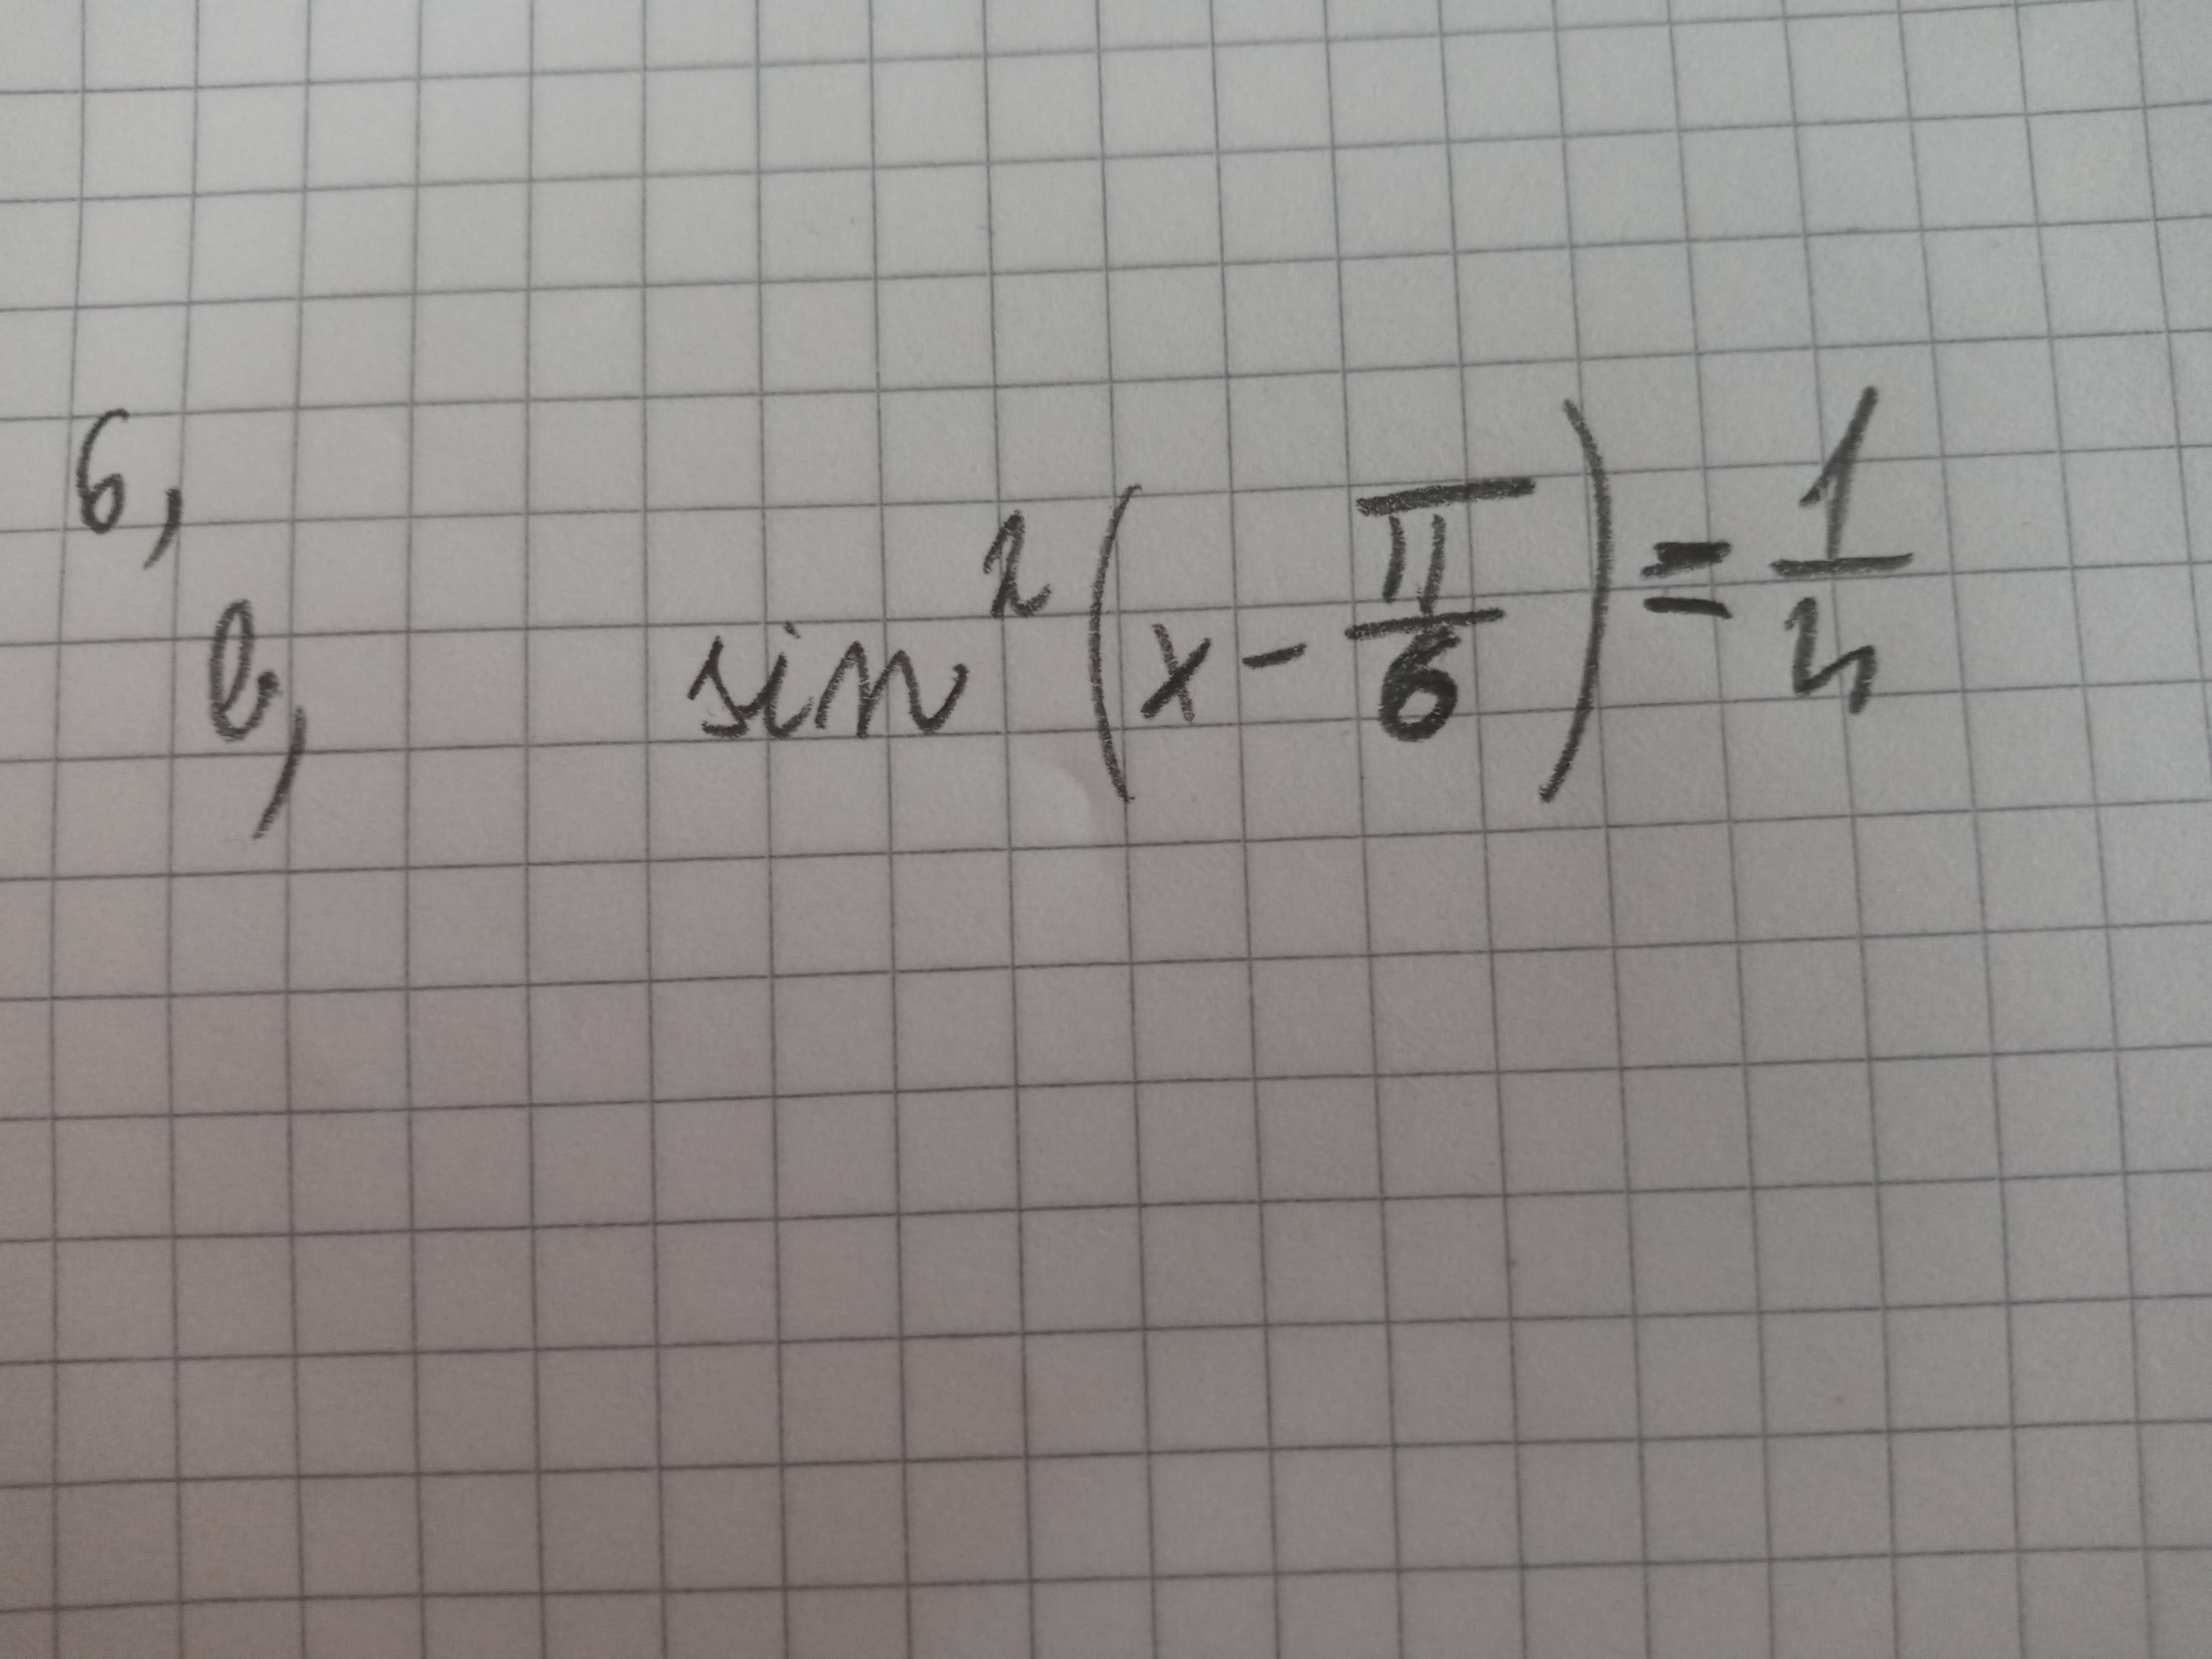 6,
b, sin²(x - π/6) = 1/4